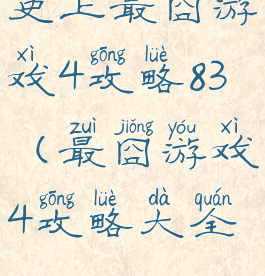 史上最囧游
xì gōng lüè
戏4攻略83
zuì jiǒng yóu xì
（最囧游戏
gōng lüè dà quán
4攻略大全